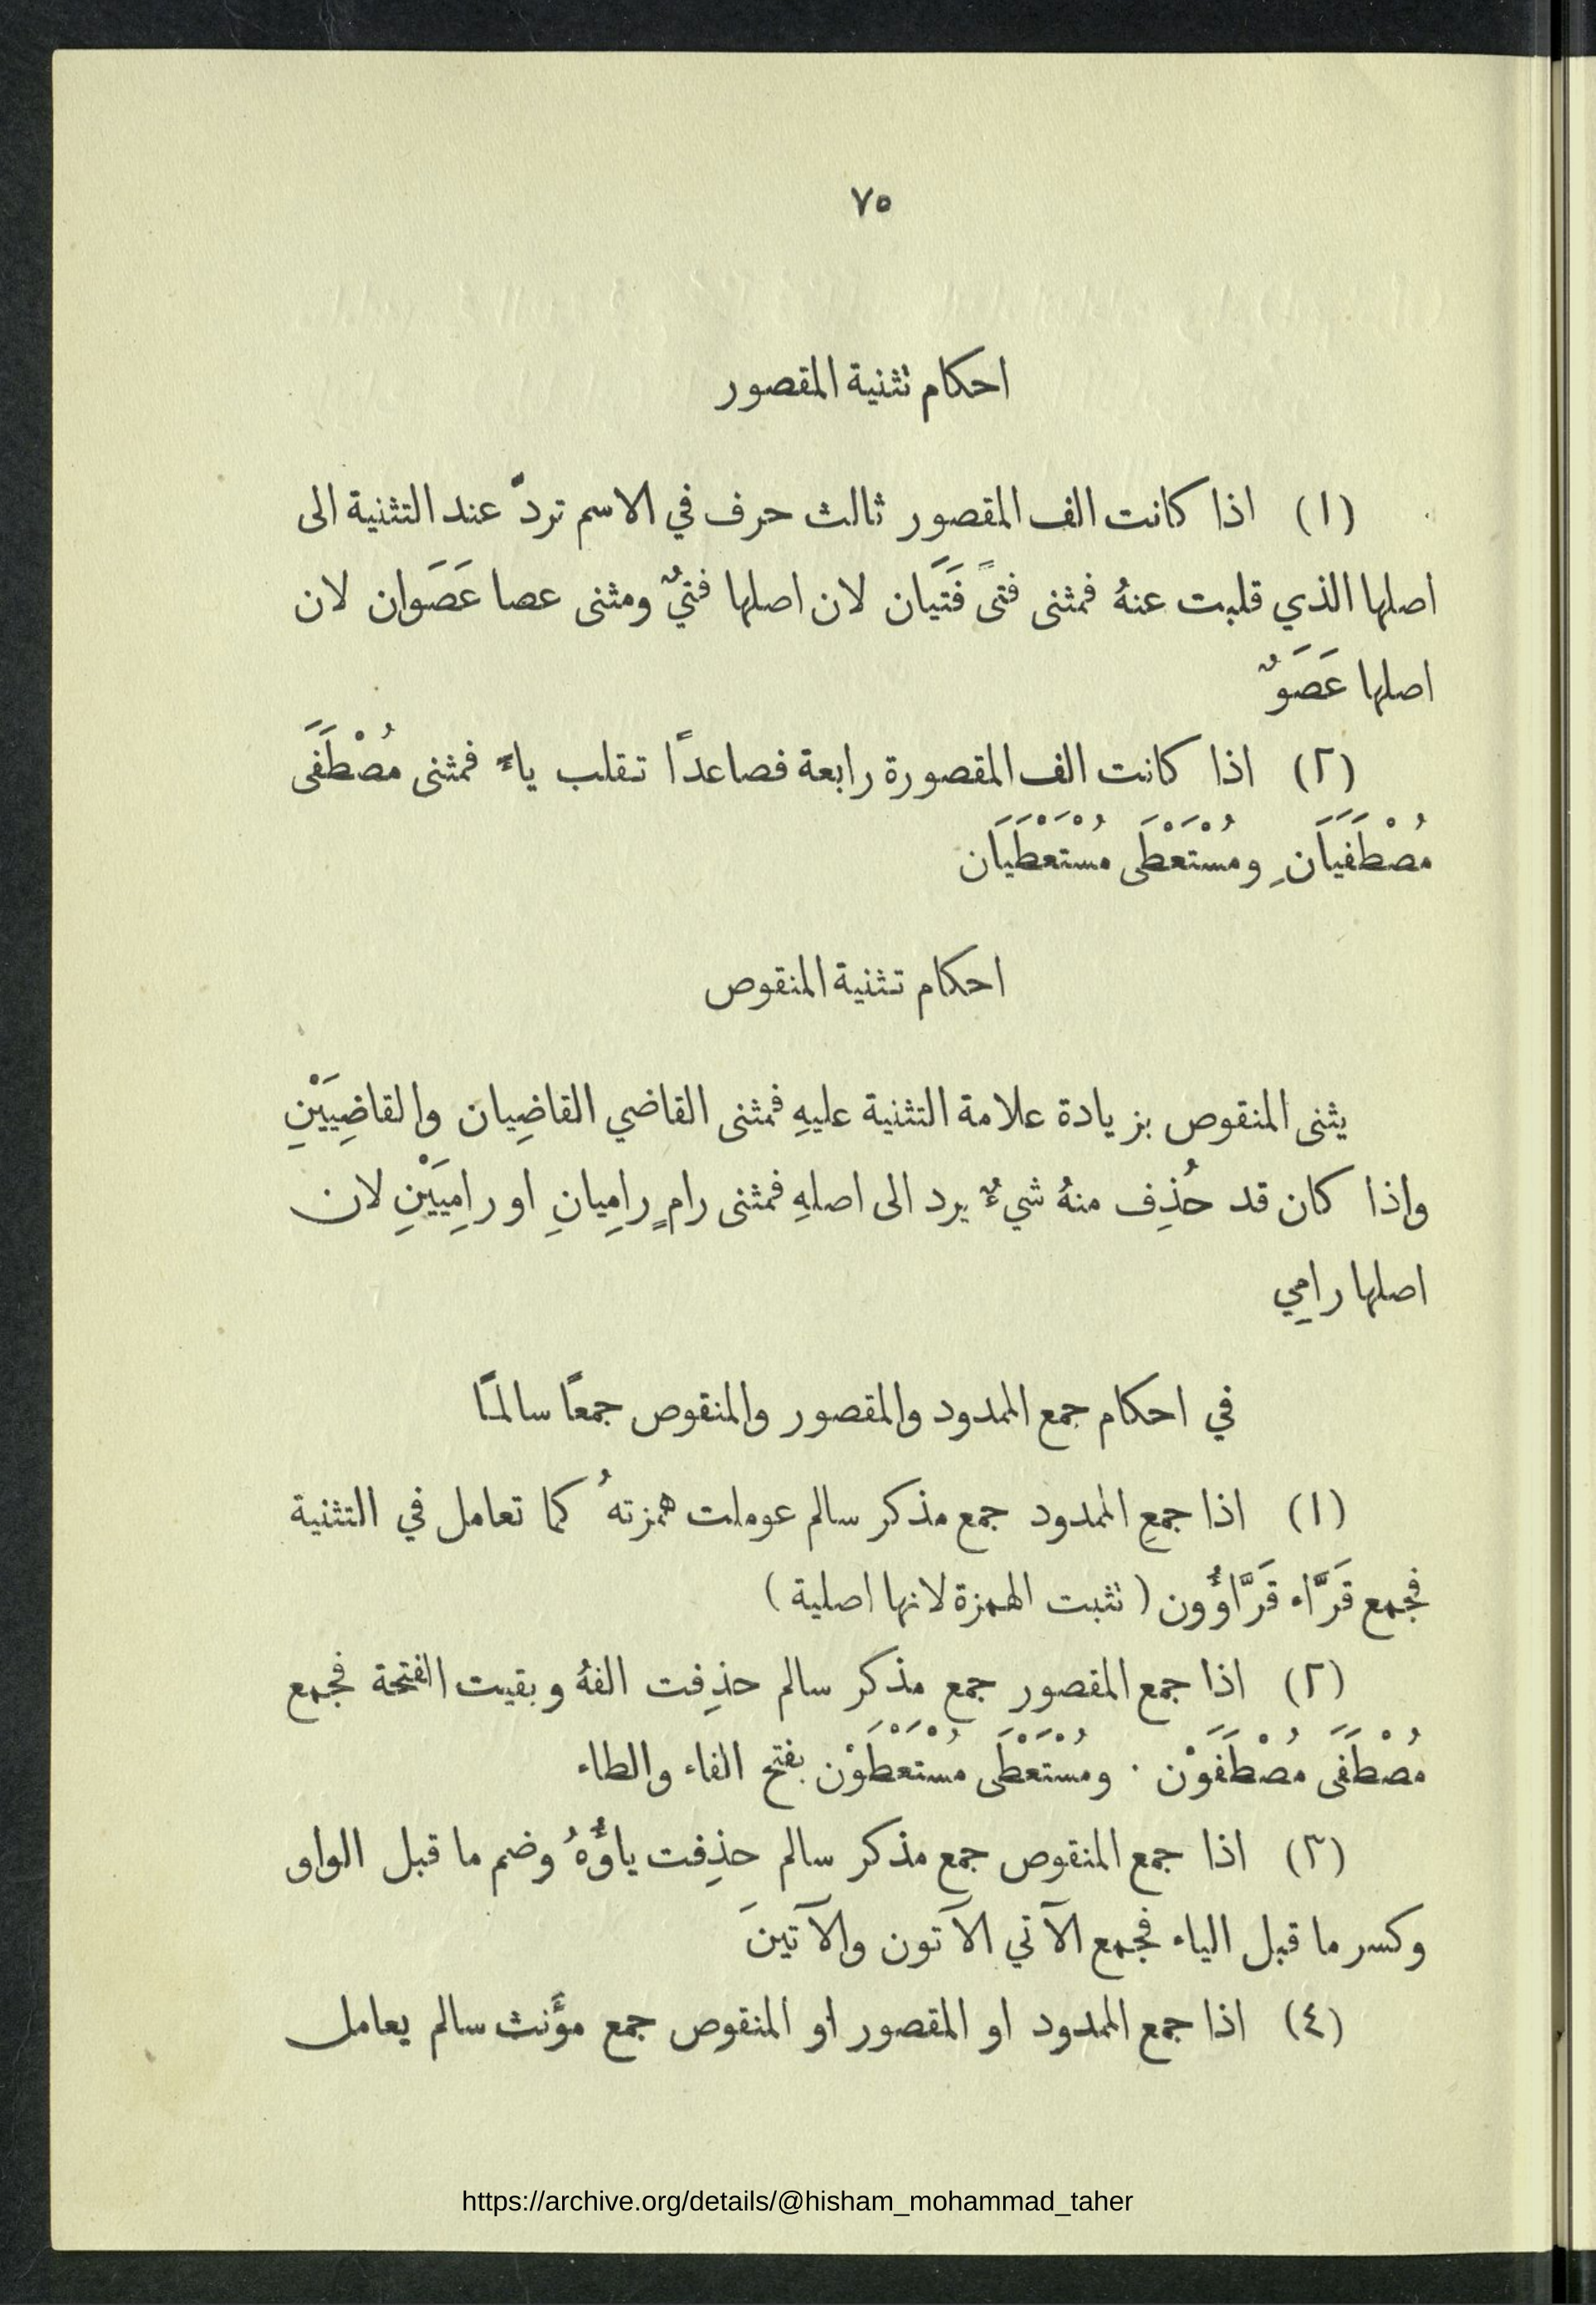 ٧٥
احكام تثنية المقصور
(١) اذا كانت الف المقصور ثالث حرف في الاسم تردّ عند التثنية الى
اصلها الذي قلبت عنهُ فمثنى فتىً فَتَيَان لان اصلها فتيٌ ومثنى عصا عَصَوان لان
اصلها عَصَوٌ
(٢) اذا كانت الف المقصورة رابعة فصاعدًا تقلب ياءً فمثنى مُصْطَفَى
مُصْطَفَيَانِ ومُسْتَعْطَى مُسْتَعْطَيَان
احكام تثنية المنقوص
يثنى المنقوص بزيادة علامة التثنية عليهِ فمثنى القاضي القاضِيان والقاضِيَيْنِ
واذا كان قد حُذِف منهُ شيءٌ يرد الى اصلهِ فمثنى رامٍ رامِيانِ او رامِيَيْنِ لان
اصلها رامِي
في احكام جمع الممدود والمقصور والمنقوص جمعًا سالمًا
(١) اذا جمعِ الممدود جمع مذكر سالم عوملت همزتهُ كما تعامل في التثنية
فجمع قَرَّاء قَرَّاؤُون (تثبت الهمزة لانها اصلية)
(٢) اذا جمع المقصور جمع مذكر سالم حذِفت الفهُ وبقيت الفتحة فجمع
مُصْطَفَى مُصْطَفَوْن . ومُسْتَعْطَى مُسْتَعْطَوْن بفتح الفاء والطاء
(٣) اذا جمع المنقوص جمع مذكر سالم حذِفت ياؤُهُ وضم ما قبل الواو
وكسر ما قبل الياء فجمع الآتي الآتون والآتينَ
(٤) اذا جمع الممدود او المقصور او المنقوص جمع مؤَنث سالم يعامل
https://archive.org/details/@hisham_mohammad_taher